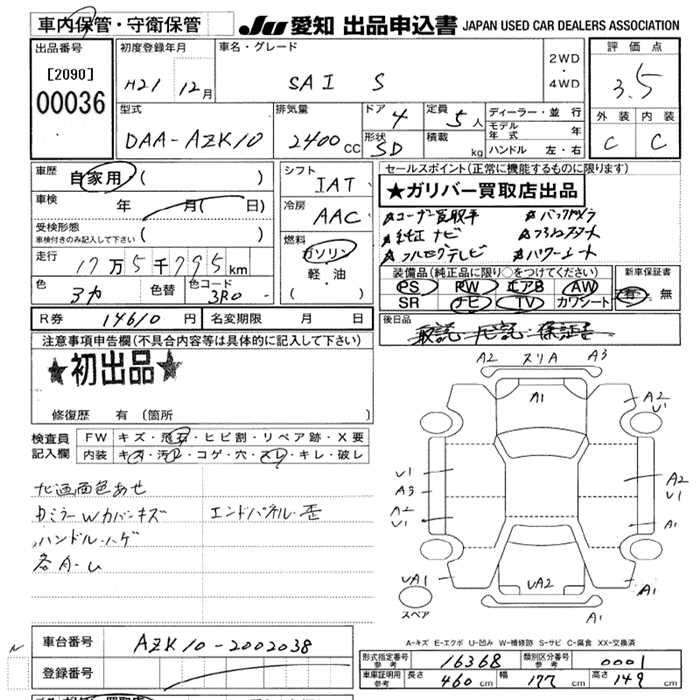 車内保管・守衛保管 JU 愛知 出品申込書 JAPAN USED CAR DEALERS ASSOCIATION
出品番号 初度登録年月 車名・グレード 2WD ・ 4WD 評価点
[2090] H21 12月 SAI S 3.5
00036 型式 排気量 ドア 4 定員 5人 ディーラー・並行 外装 内装
DAA-AZK10 2400CC 形状 SD 積載 kg モデル年式 年 C C
ハンドル 左・右
車歴 自家用 ( ) シフト IAT セールスポイント(正常に機能するものに限ります)
車検 年 月( 日) 冷房 AAC ★ガリバー買取店出品
受検形態 ☆ユーザー買取車 ☆バックカメラ
車検付きのみ記入して下さい 燃料 ☆純正ナビ
走行 17万5千795km ガソリン ☆フルセグテレビ ☆パワーシート
色 色替 色コード 3R0 軽・油 装備品(純正品に限り○をつけてください) 新車保証書
PS PW エアB AW 有 無
SR ナビ TV カワシート
R券 14610円 名変期限 月 日 後日品
取説・ナビ説・保証書
注意事項申告欄(不具合内容等は具体的に記入して下さい)
★初出品★
修復歴 有(箇所 )
検査員記入欄 FW キズ・飛石・ヒビ割・リペア跡・X要
内装 キズ・汚レ・コゲ・穴・スレ・キレ・破レ
ナビ画面色あせ
カミラーWカバーキズ エンドパネル歪
ハンドルハゲ
各A-U
A2 スリA A3
A1
A2
U1
U1
A3
A2
U1
A2
U1
A1
UA1
UA2
A1
スペア
A1
A-キズ E-エクボ U-凹み W-補修跡 S-サビ C-腐食 XX-交換済
車台番号 AZK10-2002038 形式指定番号 参考 16368 類別区分番号 参考 0001
登録番号 車庫証明用 参考 長さ 460cm 幅 177cm 高さ 149cm